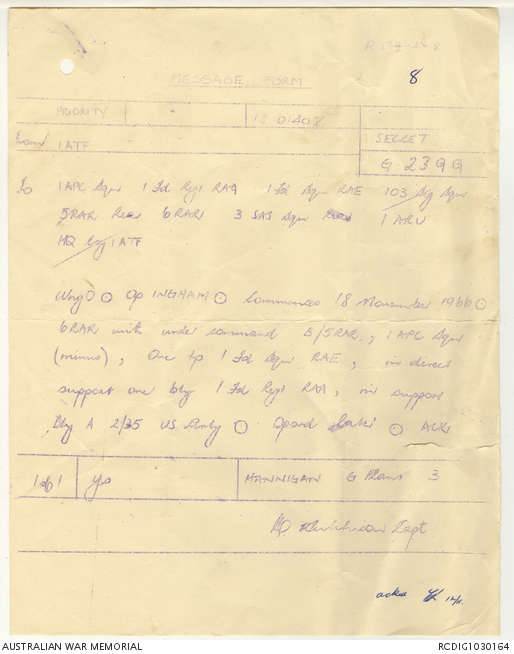 8
MESSAGE FORM
PRIORITY
12 0140Z
From 1ATF
SECRET
G 2399
To 1 APC Sqn 1 Fd Regt RAA 1 Fd Sqn RAE 103 Sig Sqn
5RAR Rear 6RAR 3 SAS Sqn 1 ARU
HQ 1ATF
WngO ⊙ Op INGHAM ⊙ Commences 18 November 1966 ⊙
6RAR with under command B/5RAR, 1 APC Sqn
(minus), One tp 1 Fd Sqn RAE, in direct
support one bty 1 Fd Regt RAA, in support
Bty A 2/35 US Arty ⊙ Opord later ⊙ Ack
1 of 1 yes HANNIGAN G Plans 3
Capt
acks 12/11
AUSTRALIAN WAR MEMORIAL
RCDIG1030164